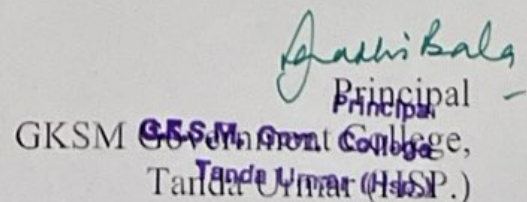 Bala
Principal
Principal
GKSM Government College,
G.K.S.M. Govt. College
Tanda Urmar (HSP.)
Tanda Urmar (Hsp.)